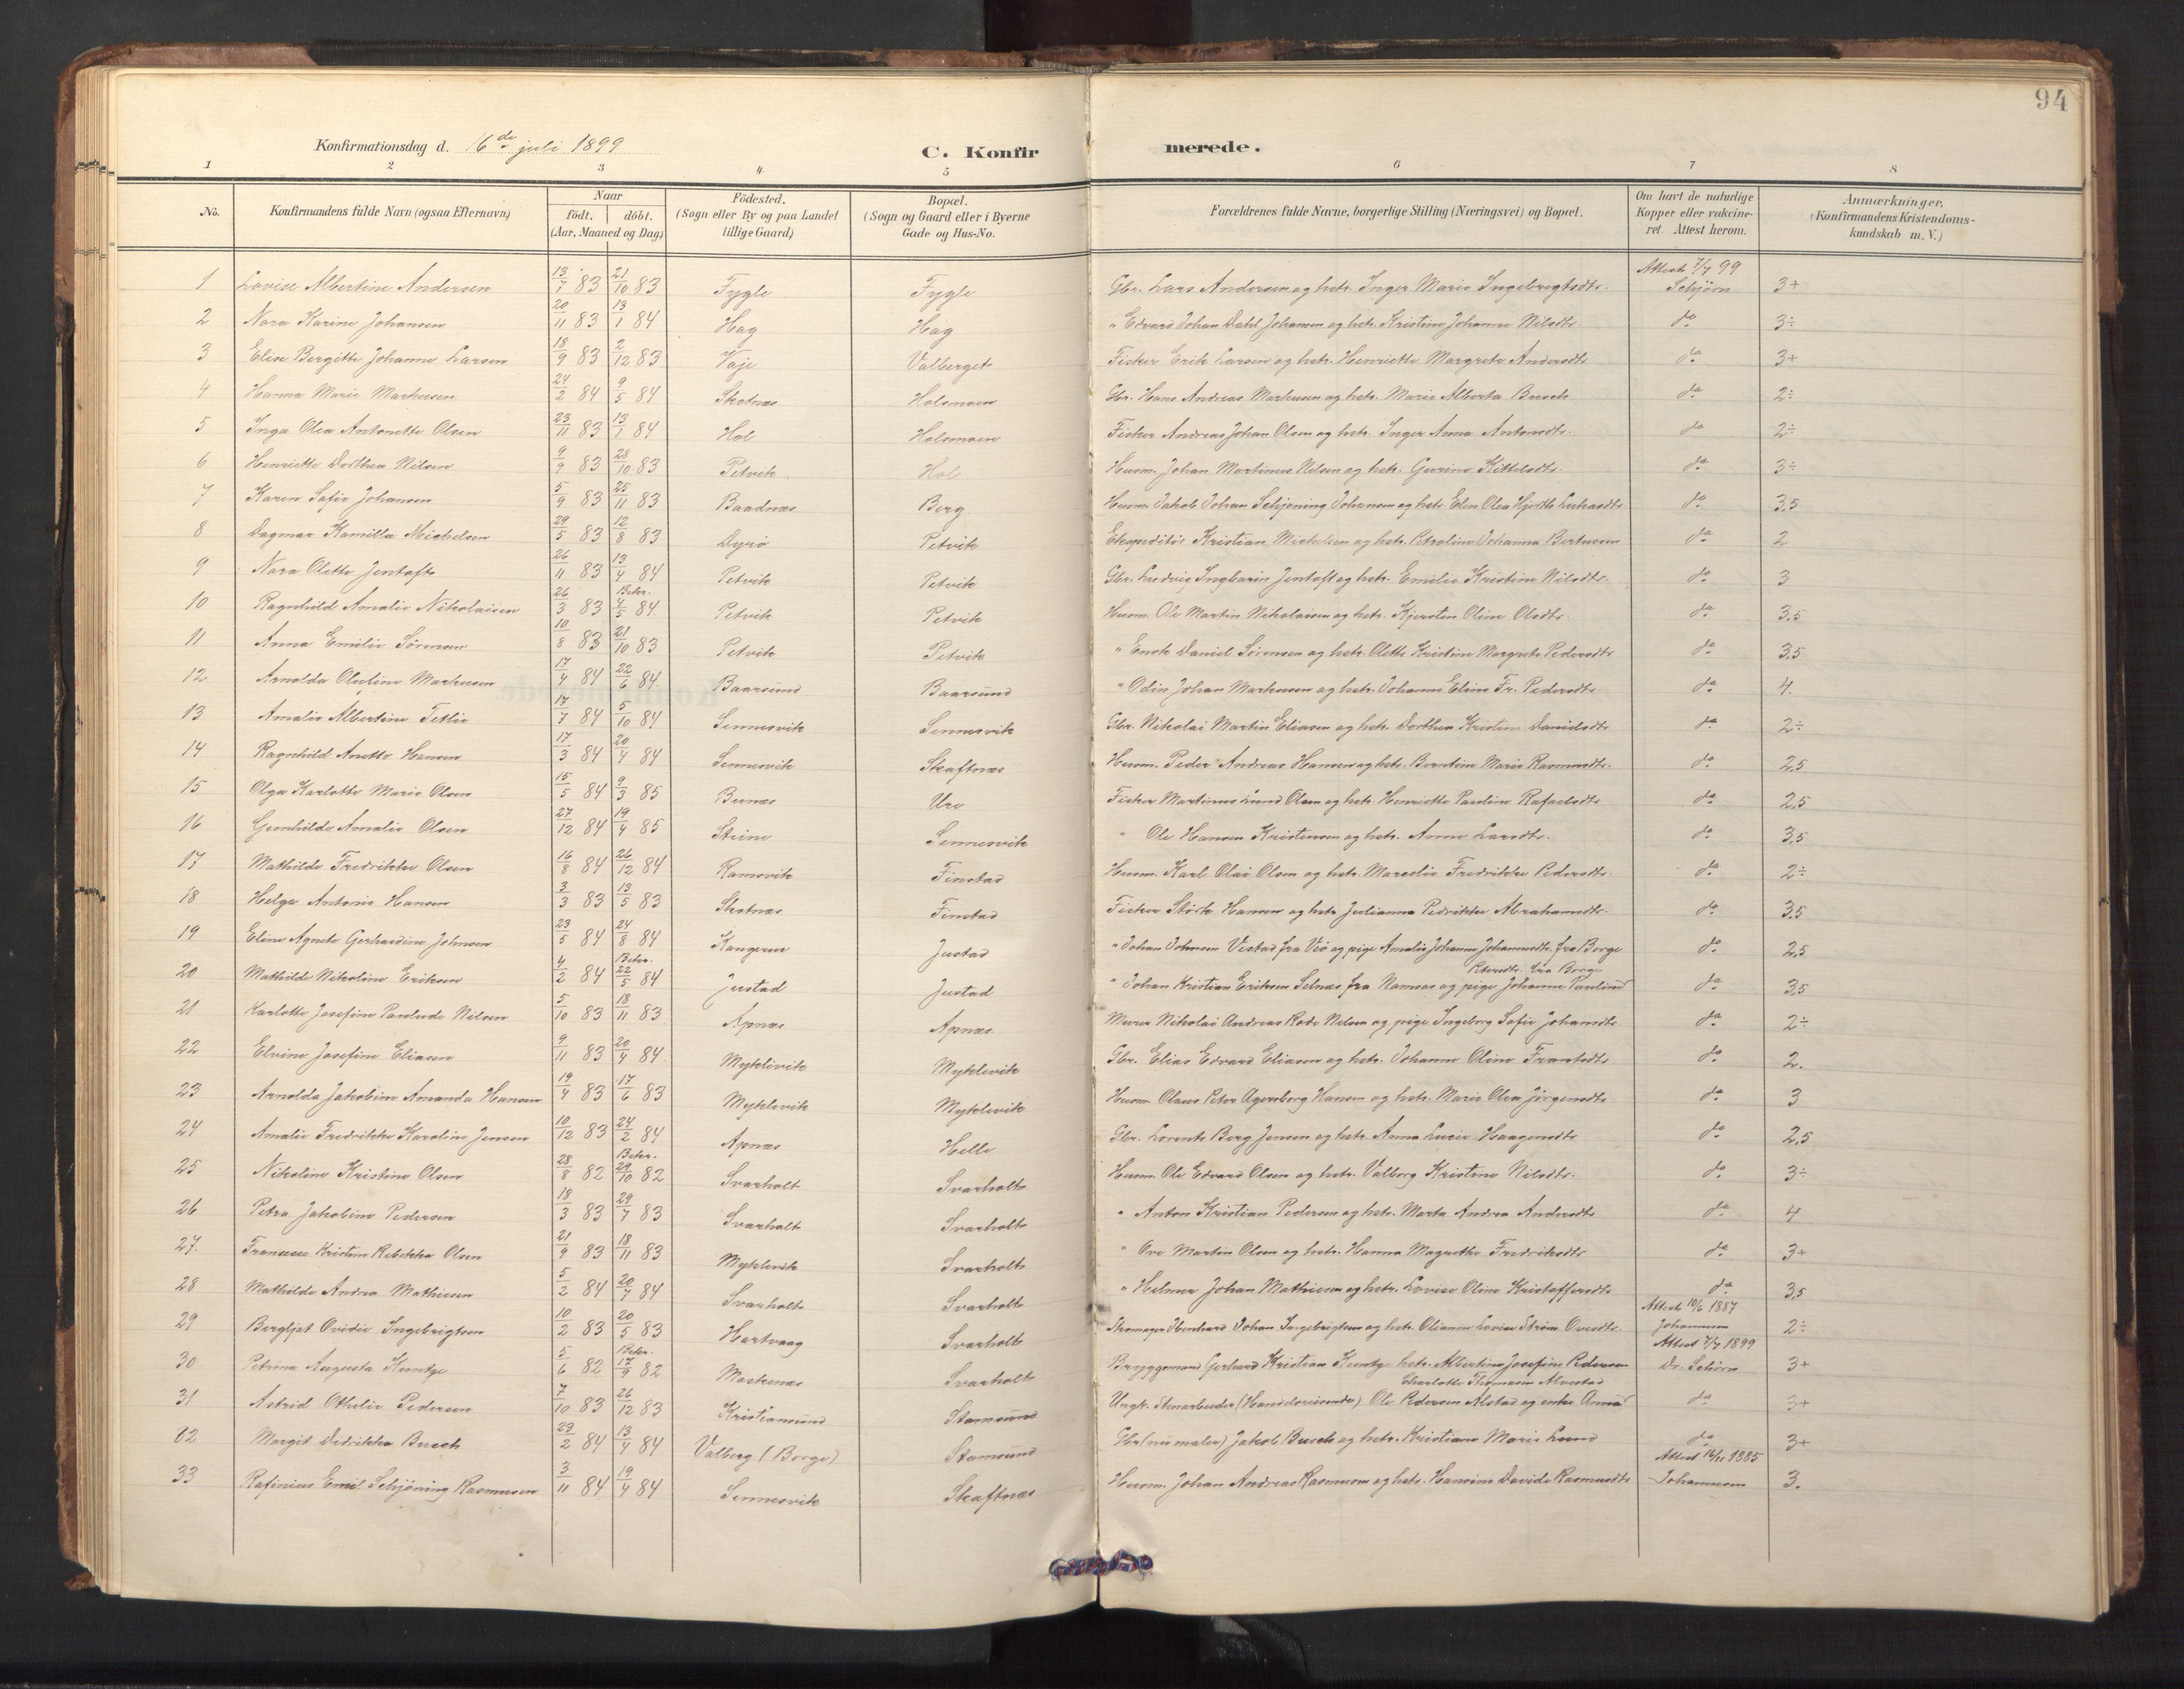 94
Konfirmationsdag d. 16de juli 1899
C. Konfirmerede.
1 2 3 4 5 6 7 8
No. Konfirmandens fulde Navn (ogsaa Efternavn) Naar födt. döbt. (Aar, Maaned og Dag) Födested. (Sogn eller By og paa Landet tillige Gaard) Bopæl. (Sogn og Gaard eller i Byerne Gade og Hus-No. Forældrenes fulde Navne, borgerlige Stilling (Næringsvei) og Bopæl. Om havt de naturlige Kopper eller vakcineret. Attest herom. Anmærkninger. (Konfirmandens Kristendomskundskab m. V.)
1 Lovise Albertine Andersen 13/7 83 21/10 83 Fygle Fygle Gbr. Lars Andersen og hstr. Inger Marie Ingebrigtsdtr. Attest 7/7 99 Schjørn 3+
2 Nora Karine Johansen 20/11 83 13/1 84 Hag Hag " Edvard Johan Dahl Johansen og hstr. Kristine Johanna Nilsdtr. do 3÷
3 Elise Bergitte Johanna Larsen 18/9 83 2/12 83 Vaje Valberget Fisker Erik Larsen og hstr. Henriette Margrete Andersdtr. do 3+
4 Hanna Marie Markusen 24/2 84 9/5 84 Skotnæs Holsmoen Gbr. Hans Andreas Markusen og hstr. Marie Alberta Busch do 2÷
5 Inga Olea Antonette Olsen 23/11 83 13/1 84 Hol Holsmoen Fisker Andreas Johan Olsen og hstr. Inger Anna Antonsdtr. do 2÷
6 Henriette Dorthea Nilsen 9/9 83 28/10 83 Petvik Hol Husm. Johan Martinus Nilsen og hstr. Gurine Kittelsdtr. do 3÷
7 Karen Sofie Johansen 5/9 83 25/11 83 Baadnæs Berg Husm. Jakob Johan Schjøning Johansen og hstr. Elen Olea Hjorth do 3,5
8 Dagmar Kamilla Michelsen 29/5 83 12/8 83 Dyrø Petvik Ekspeditør Kristian Michelsen og hstr. Petroline Johanna Berntsen do 2
9 Nora Olette Jentoft 26/11 83 13/4 84 Petvik Petvik Gbr. Ludvig Ingbarin Jentoft og hstr. Emilie Kristine Nilsdtr. do 3
10 Ragnhild Amalie Nikolaisen 26/3 83 Bekr. 4/5 84 Petvik Petvik Husm. Ole Martin Nikolaisen og hstr. Kjersten Oline Olsdtr. do 3,5
11 Anna Emilie Sørensen 10/8 83 21/10 83 Petvik Petvik " Enok Daniel Sørensen og hstr. Olette Kristine Margrete Pedersdtr do 3,5
12 Arnolda Oluline Markusen 17/4 84 22/6 84 Baarsund Baarsund " Odin Johan Markusen og hstr. Johanna Eline Fr. Pedersdtr. do 4.
13 Amalie Albertine Tetlie 17/7 84 5/10 84 Sennesvik Sennesvik Gbr. Nikolai Martin Eliasen og hstr. Dorthea Kristine Danielsdtr. do 2÷
14 Ragnhild Anette Hansen 17/3 84 20/4 84 Sennesvik Skaftnæs Husm. Peder Andreas Hansen og hstr. Berntine Marie Rasmusdtr. do 2,5
15 Olga Karlotte Marie Olsen 15/5 84 9/3 85 Bunæs Ure Fisker Martinus Lund Olsen og hstr. Henriette Pauline Rafaelsdtr do 2,5
16 Gunhilda Amalie Olsen 27/12 84 19/4 85 Steine Sennesvik " Ole Hansen Kristensen og hstr. Anne Larsdtr. do 3,5
17 Mathilde Fredrikke Olsen 16/8 84 26/12 84 Ramsvik Finstad Husm. Karl Olai Olsen og hstr. Marselie Fredrikke Pedersdtr. do 2÷
18 Helga Antonie Hansen 3/3 83 13/5 83 Skotnæs Finstad Fisker Hansen og hstr. Julianna Pedrikke Abrahamsdtr. do 3,5
19 Eline Agnete Gerhardine Johnsen 23/5 84 24/8 84 Kangerur Justad " Johan Johnsen Vestad fra Veø og pige Amalie Johanna Johannesdtr. fra Borge do 2,5
20 Mathilde Nikoline Eriksen 4/2 84 Bekr. 22/5 84 Justad Justad " Johan Kristian Eriksen Selnæs fra Namsos og pige Johanna Pauline Petersdtr. fra Borge do 3,5
21 Karlotte Josefine Paulude Nilsen 5/10 83 18/11 83 Apnæs Apnæs Murer Nikolai Andreas Rode Nilsen og pige Ingeborg Sofie Johansdtr. do 2÷
22 Elvine Josefine Eliasen 9/11 83 20/4 84 Myklevik Myklevik Gbr. Elias Edvard Eliasen og hstr. Johanna Oline Frantsdtr do 2.
23 Arnolda Jakobine Amanda Hansen 19/4 83 17/6 83 Myklevik Myklevik Husm. Olaus Peter Agersborg Hansen og hstr. Marie Olea Jørgensdtr do 3
24 Amalie Fredrikke Karoline Jensen 10/12 83 24/2 84 Apnæs Helle Gbr. Lorents Berg Jensen og hstr. Anna Lucie Haagensdtr do 2,5
25 Nikoline Kristine Olsen 28/8 82 Bekr. 29/10 82 Svarholt Svarholt Husm. Ole Edvard Olsen og hstr. Valborg Kristine Nilsdtr. do 3÷
26 Petra Jakobine Pedersen 18/3 83 29/7 83 Svarholt Svarholt " Anton Kristian Pedersen og hstr. Marta Andrea Andersdtr do 4
27. Fransese Kristine Rebekka Olsen 21/9 83 18/11 83 Myklevik Svarholt " Ove Martin Olsen og hstr. Hanna Magrethe Fredriksdtr do 3+
28 Mathilde Andrea Mathisen 5/2 84 20/7 84 Svarholt Svarholt " Helmer Johan Mathisen og hstr. Lovise Oline Kristoffersdtr do 3,5
29 Bergljot Ovidie Ingebrigtsen 10/2 83 20/5 83 Hartvaag Svarholt Skomager Johan Ingebrigtsen og hstr. Olianna Lovise Strøm Ovesdtr. Attest 10/6 1887 Johannesen 2÷
30 Petrina Augusta Kuntze 5/6 82 Bekr. 17/9 82 Moskenæs Svarholt Bryggemand Gerhard Kristian Kuntze hstr. Albertine Josefine Pedersen Attest 7/7 1899 Dr. Schjørn 3+
31 Astrid Othelie Pedersen 7/10 83 26/12 83 Kristiansund Stamsund Ungk. Stenarbeider (Handelsreisende) Ole Pedersen Alstad og enke Anna Charlotte Thomasen Alvestad do 3+
32 Margit Didrikke Busch 23/2 84 13/4 84 Valberg (Borge) Stamsund Gbr (nu maler) Jakob Busch og hstr. Kristiane Marie Lund do 3+
33 Rafinius Emil Schjøning Rasmusen 3/11 84 19/4 84 Sennesvik Skaftnæs Husm. Johan Andreas Rasmusen og hstr. Hansine Davida Rasmusdtr Attest 14/11 1885 Johannesen 3.